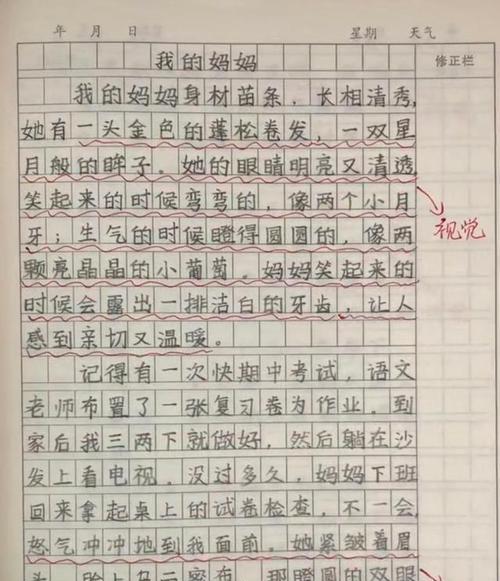 年 月 日 星期 天气
修正栏
我的妈妈
我的妈妈身材苗条，长相清秀，
她有一头金色的蓬松卷发，一双星
月般的眸子。她的眼睛明亮又清透，
笑起来的时候弯弯的，像两个小月
牙；生气的时候瞪得圆圆的，像两
视觉
颗亮晶晶的小葡萄。妈妈笑起来的
时候会露出一排洁白的牙齿，让人
感到亲切又温暖。
记得有一次快期中考试，语文
老师布置了一张复习卷为作业。到
家后我三两下就做好，然后躺在沙
发上看电视。没过多久，妈妈下班
回来拿起桌上的试卷检查，不一会
怒气冲冲地到我面前。她紧皱着眉
头，脸上乌云密布，那瞪圆的双眼